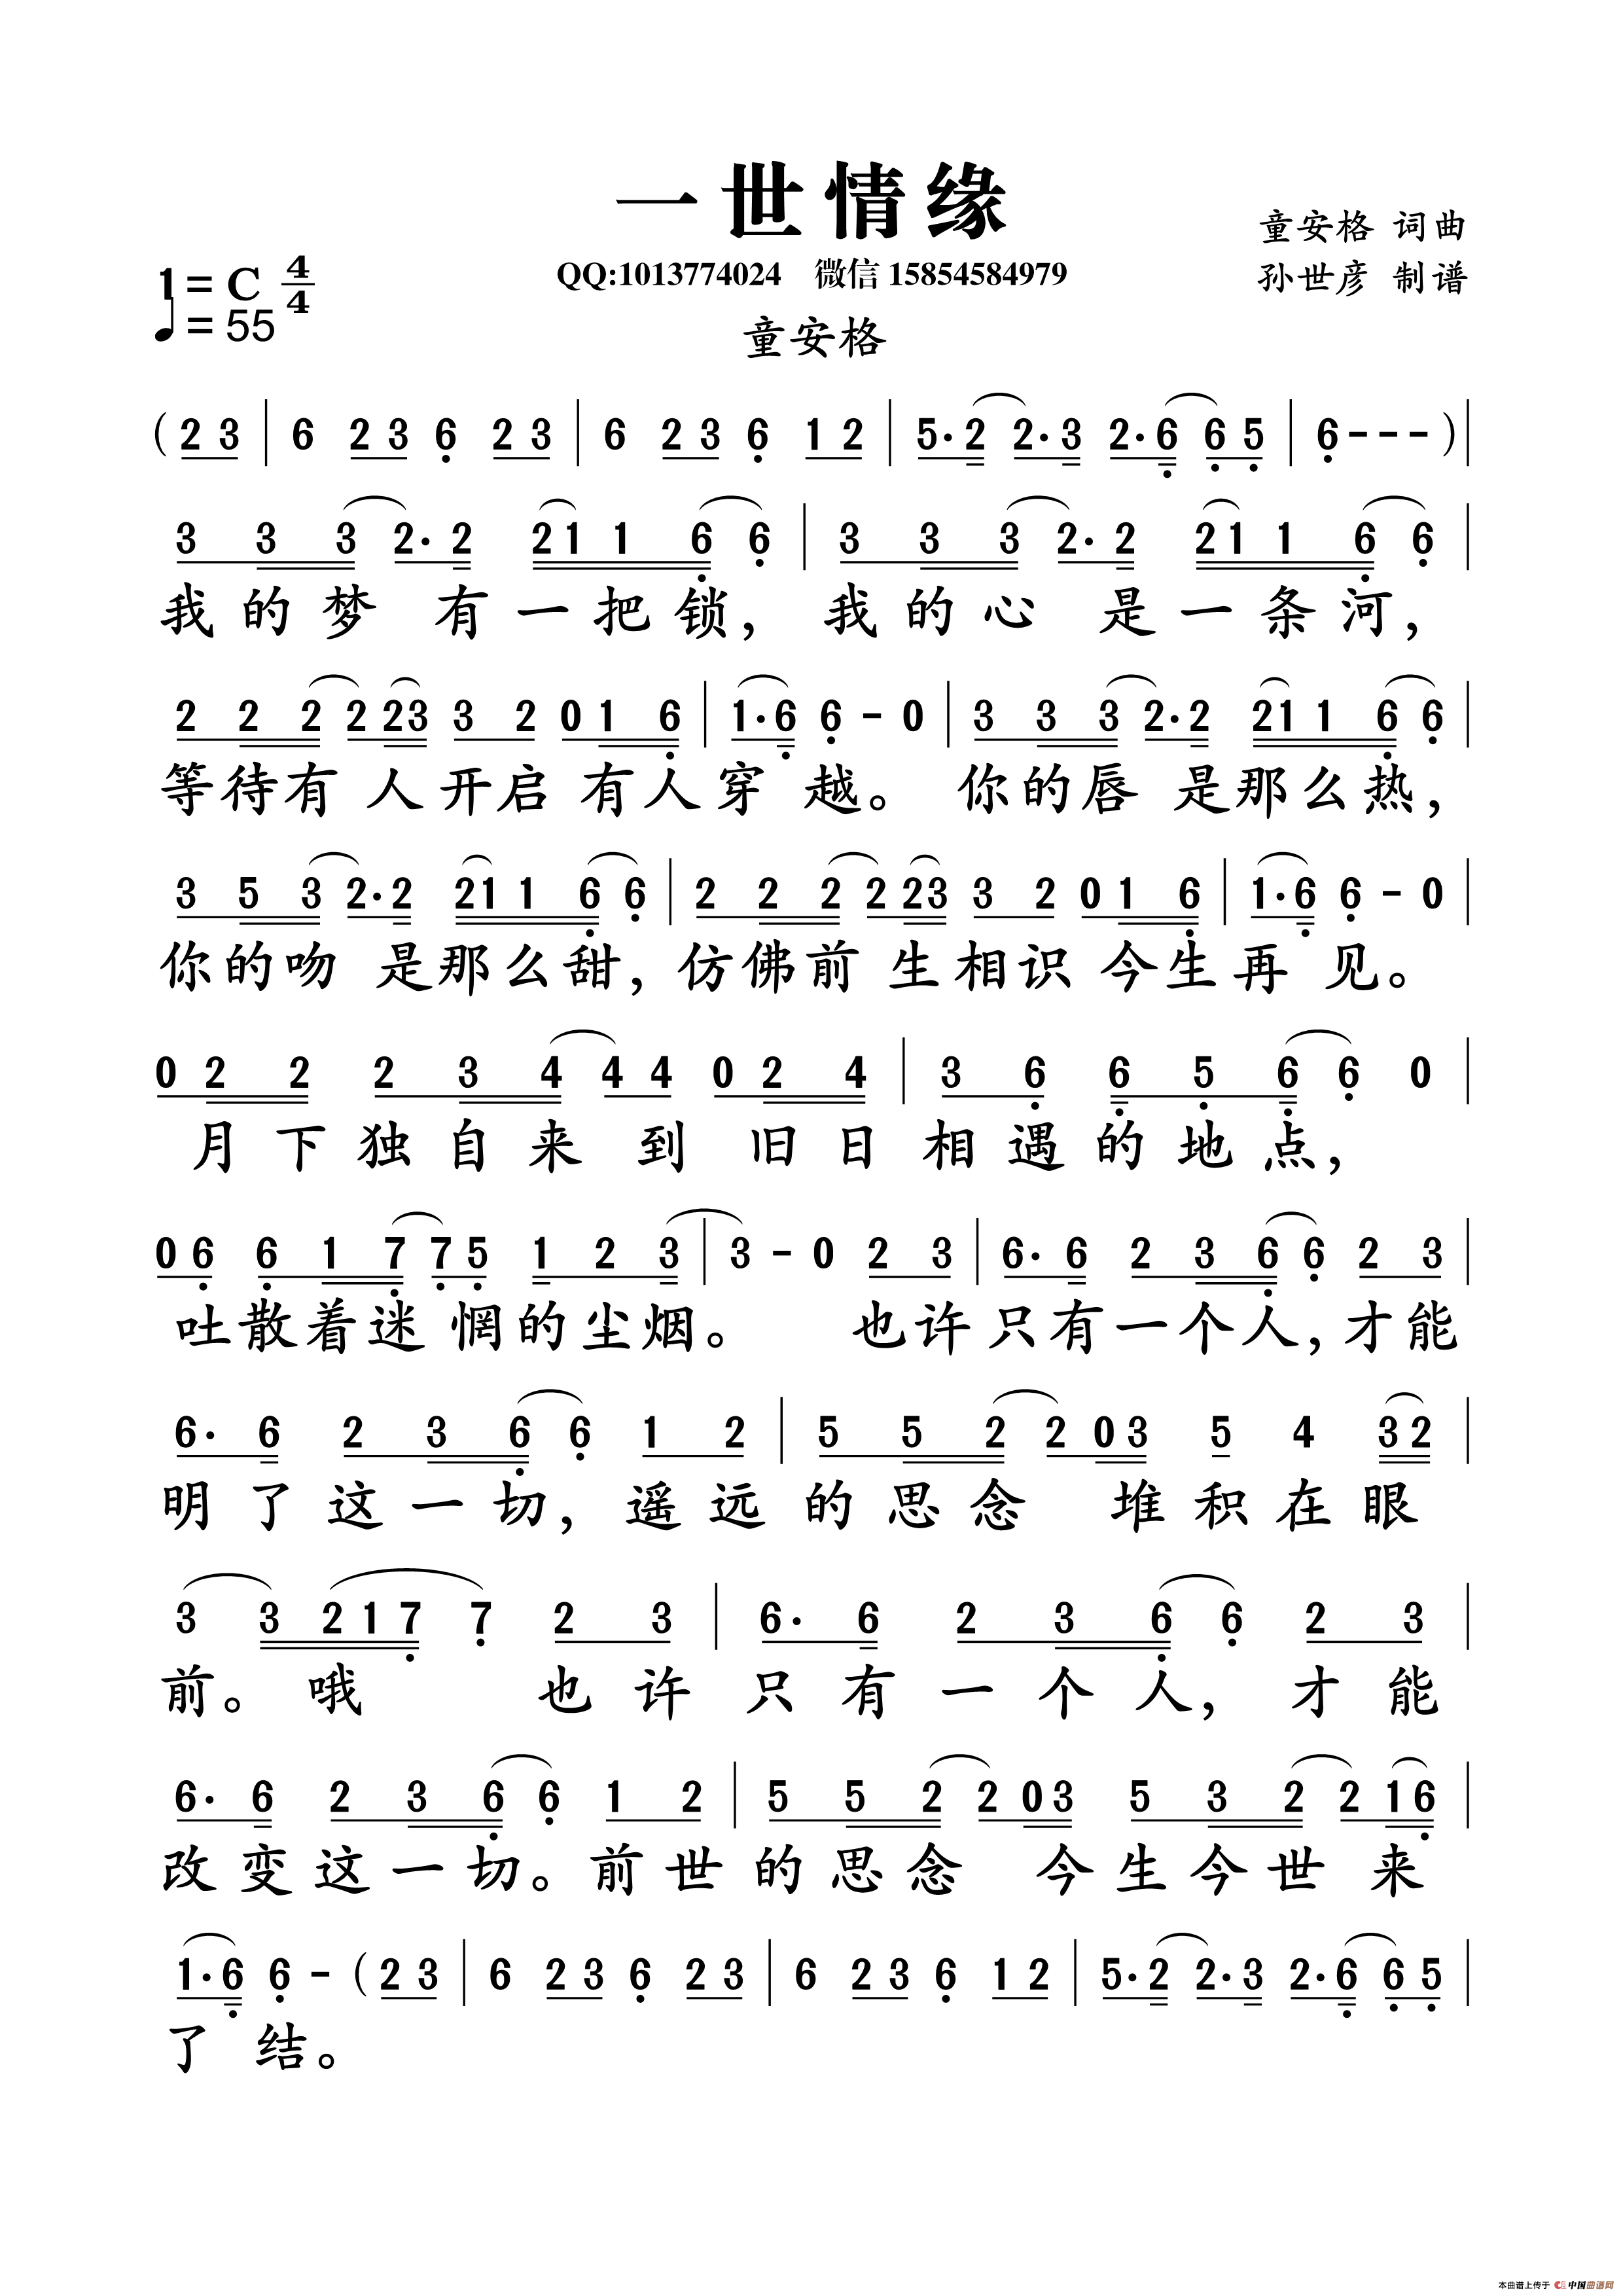 一世情缘
童安格 词曲
1=C 4/4
QQ:1013774024 微信 15854584979
孙世彦 制谱
♩=55
童安格
(2 3 | 6 2 3 6 2 3 | 6 2 3 6 1 2 | 5·2 2·3 2·6 6 5 | 6--- ) |
3 3 3 2·2 2 1 1 6 6 | 3 3 3 2·2 2 1 1 6 6 |
我的梦 有一把锁，我的心 是一条河，
2 2 2 2 2 3 3 2 0 1 6 | 1·6 6 - 0 | 3 3 3 2·2 2 1 1 6 6 |
等待有 人开启 有人穿 越。 你的唇 是那么热，
3 5 3 2·2 2 1 1 6 6 | 2 2 2 2 2 3 3 2 0 1 6 | 1·6 6 - 0 |
你的吻 是那么甜，仿佛前 生相识 今生再 见。
0 2 2 2 3 4 4 4 0 2 4 | 3 6 6 5 6 6 0 |
月下独自来 到 旧日相遇的地点，
0 6 6 1 7 7 5 1 2 3 | 3 - 0 2 3 | 6· 6 2 3 6 6 2 3 |
吐散着迷 惘的尘烟。 也许只有一个人，才能
6· 6 2 3 6 6 1 2 | 5 5 2 2 0 3 5 4 3 2 |
明了这一切，遥远的思念 堆积在眼
3 3 2 1 7 7 2 3 | 6· 6 2 3 6 6 2 3 |
前。哦 也许只有一个人，才能
6· 6 2 3 6 6 1 2 | 5 5 2 2 0 3 5 3 2 2 1 6 |
改变这一切。前世的思念 今生今世 来
1·6 6 - (2 3 | 6 2 3 6 2 3 | 6 2 3 6 1 2 | 5·2 2·3 2·6 6 5 |
了 结。
本曲谱上传于 中国曲谱网